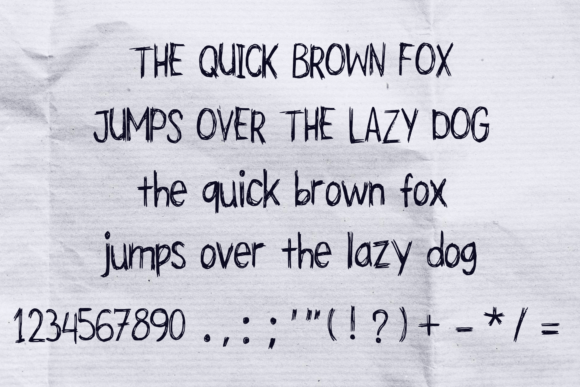 THE QUICK BROWN FOX
JUMPS OVER THE LAZY DOG
the quick brown fox
jumps over the lazy dog
1234567890 . , : ; ' " ( ! ? ) + - * / =